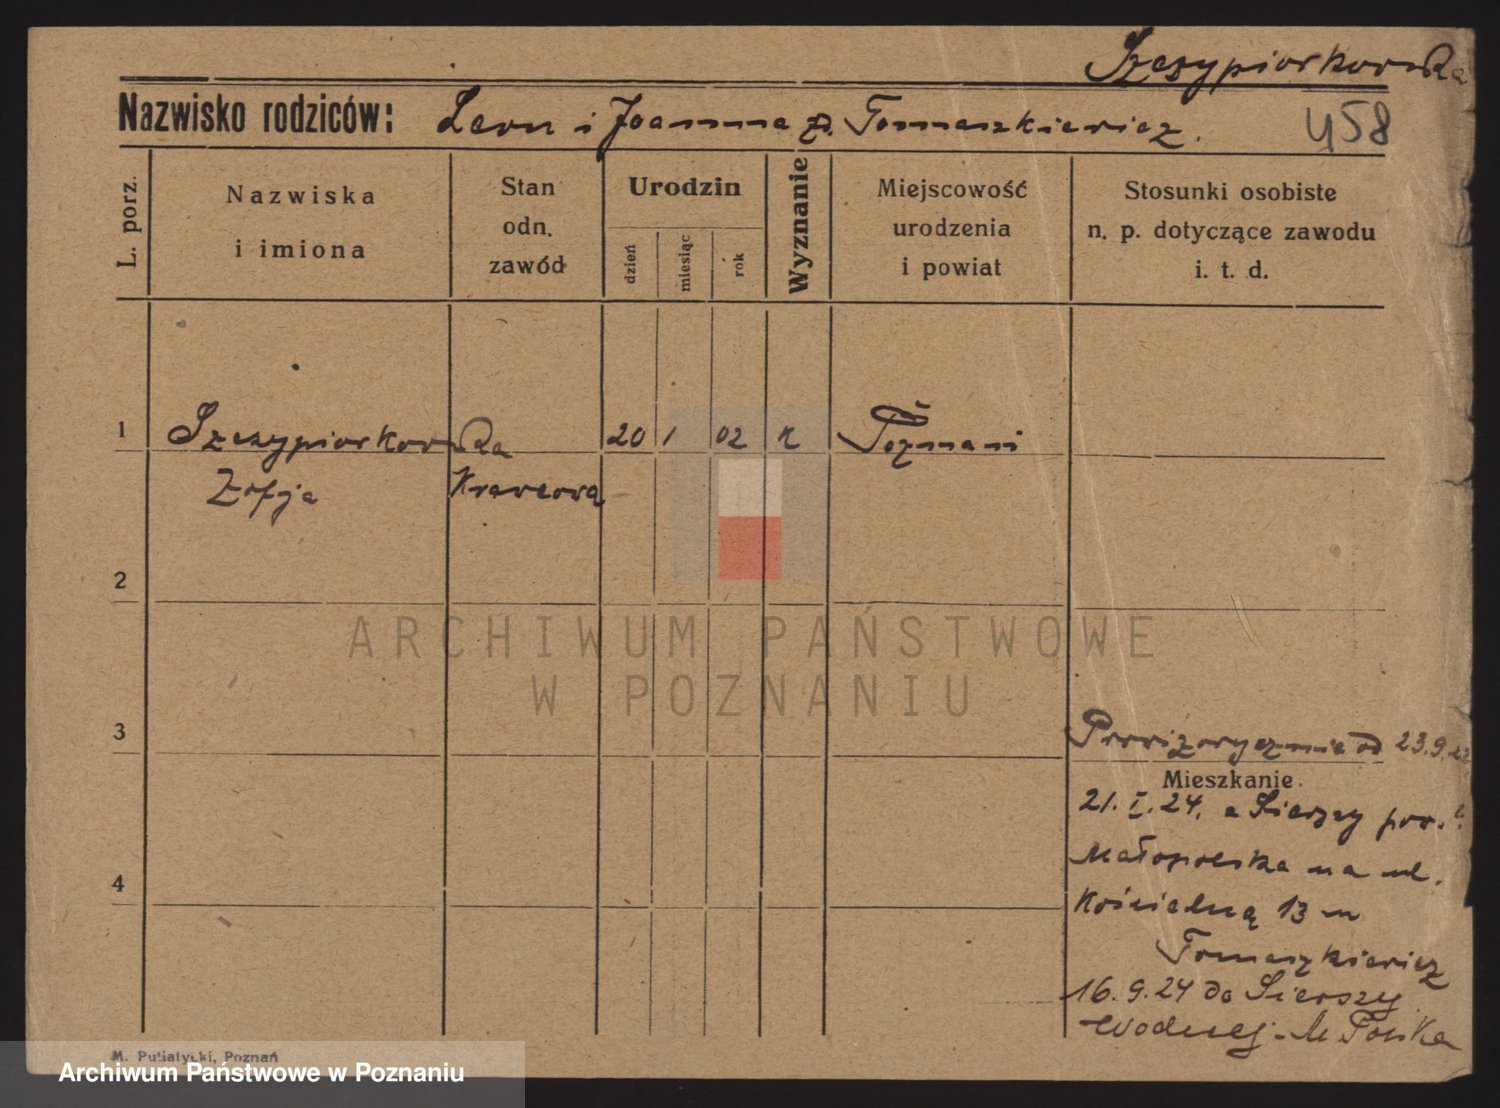 Szczypiorkowska
Nazwisko rodziców: Leon i Joanna z. Tomaszkiewicz.
458
L. porz.
Nazwiska
i imiona
Stan
odn.
zawód
Urodzin
dzień
miesiąc
rok
Wyznanie
Miejscowość
urodzenia
i powiat
Stosunki osobiste
n. p. dotyczące zawodu
i. t. d.
1 Szczypiorkowska 20 1 02 k Poznań
Zofja Krawcowa
2
ARCHIWUM PAŃSTWOWE
W POZNANIU
3
Prowizorycznie od 23.9.
Mieszkanie.
21. I. 24. z Sierszy pow.
Małopolska na ul.
4
Kościelną 13 u
Tomaszkiewicz
16.9.24 do Sierszy
Wodnej - M. Polska
M. Putiatycki, Poznań
Archiwum Państwowe w Poznaniu